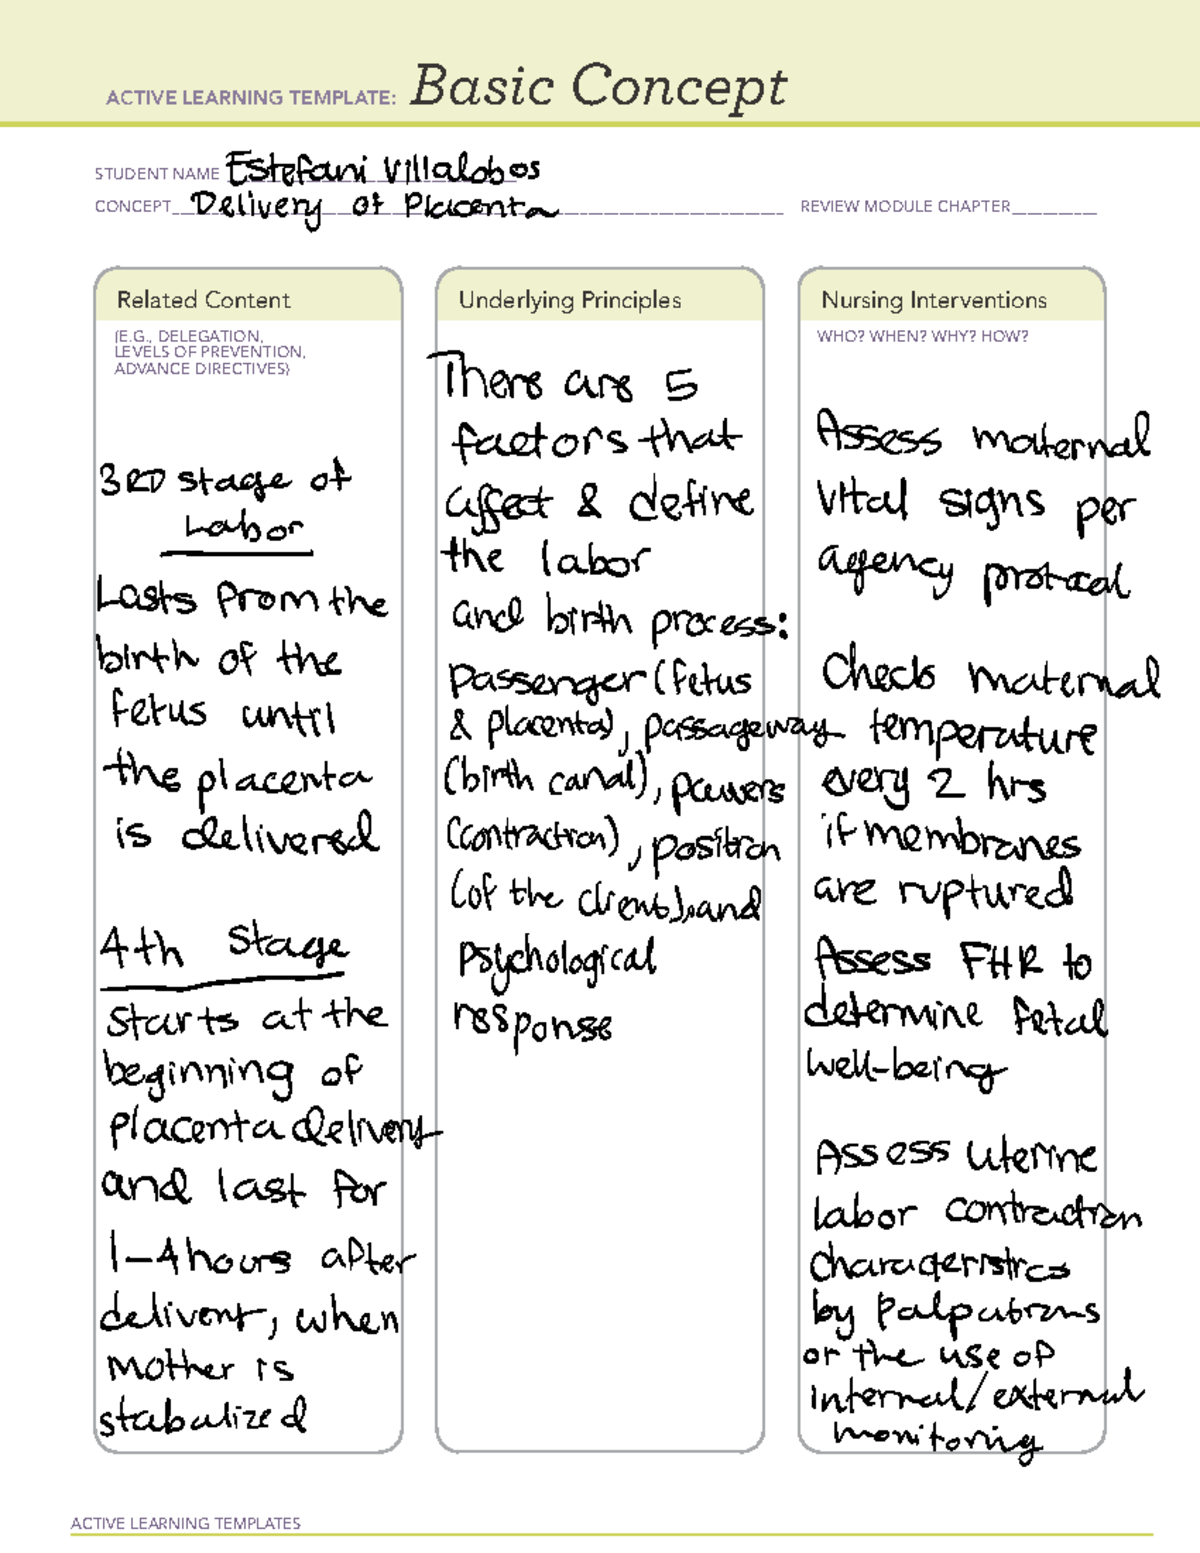 ACTIVE LEARNING TEMPLATE: Basic Concept
STUDENT NAME Estefani Villalobos
CONCEPT Delivery of Placenta REVIEW MODULE CHAPTER
Related Content
(E.G., DELEGATION,
LEVELS OF PREVENTION,
ADVANCE DIRECTIVES)
3RD stage of
Labor
Lasts from the
birth of the
fetus until
the placenta
is delivered
4th stage
starts at the
beginning of
placenta delivery
and last for
1-4 hours after
delivery, when
mother is
stabalized
Underlying Principles
There are 5
factors that
affect & define
the labor
and birth process:
passenger (fetus
& placenta), passageway
(birth canal), powers
(contraction), position
(of the client), and
psychological
response
Nursing Interventions
WHO? WHEN? WHY? HOW?
Assess maternal
vital signs per
agency protocal
Check maternal
temperature
every 2 hrs
if membranes
are ruptured
Assess FHR to
determine fetal
well-being
Assess uterine
labor contraction
characteristics
by palpations
or the use of
internal/external
monitoring
ACTIVE LEARNING TEMPLATES